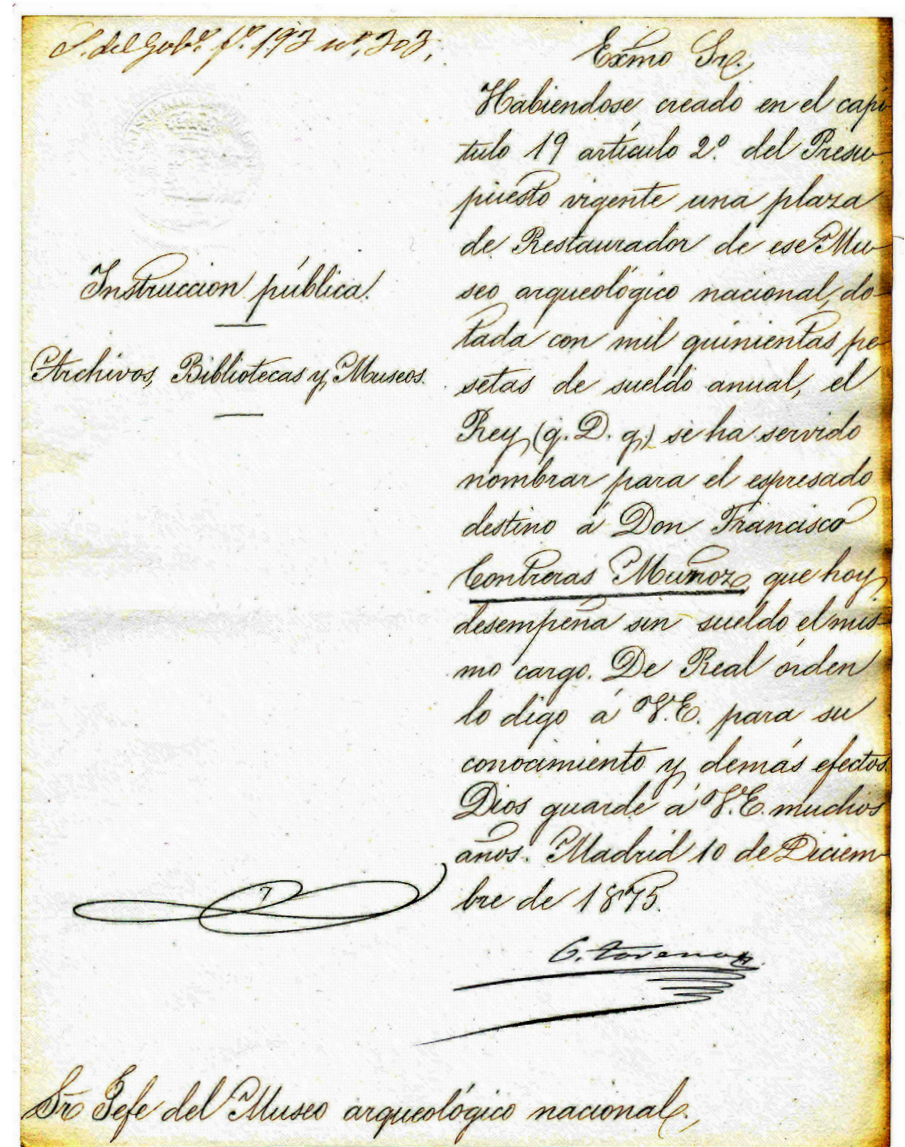 S. del Gobº. fº. 193 nº. 303.
Exmo Sr.
Habiendose creado en el capi
tulo 19 artículo 2º. del Presu-
puesto vigente una plaza
de Restaurador de ese Mu-
seo arqueológico nacional, do-
tada con mil quinientas pe
setas de sueldo anual, el
Rey (q. D. g.) se ha servido
nombrar para el espresado
destino á Don Francisco
Contreras Muñoz, que hoy
desempeña sin sueldo el mis-
mo cargo. De Real órden
lo digo á V.E. para su
conocimiento y demás efectos.
Dios guarde á V.E. muchos
años. Madrid 10 de Diciem-
bre de 1875.
C. Toreno
Instruccion pública.
Archivos, Bibliotecas y Museos.
Sr. Gefe del Museo arqueológico nacional.